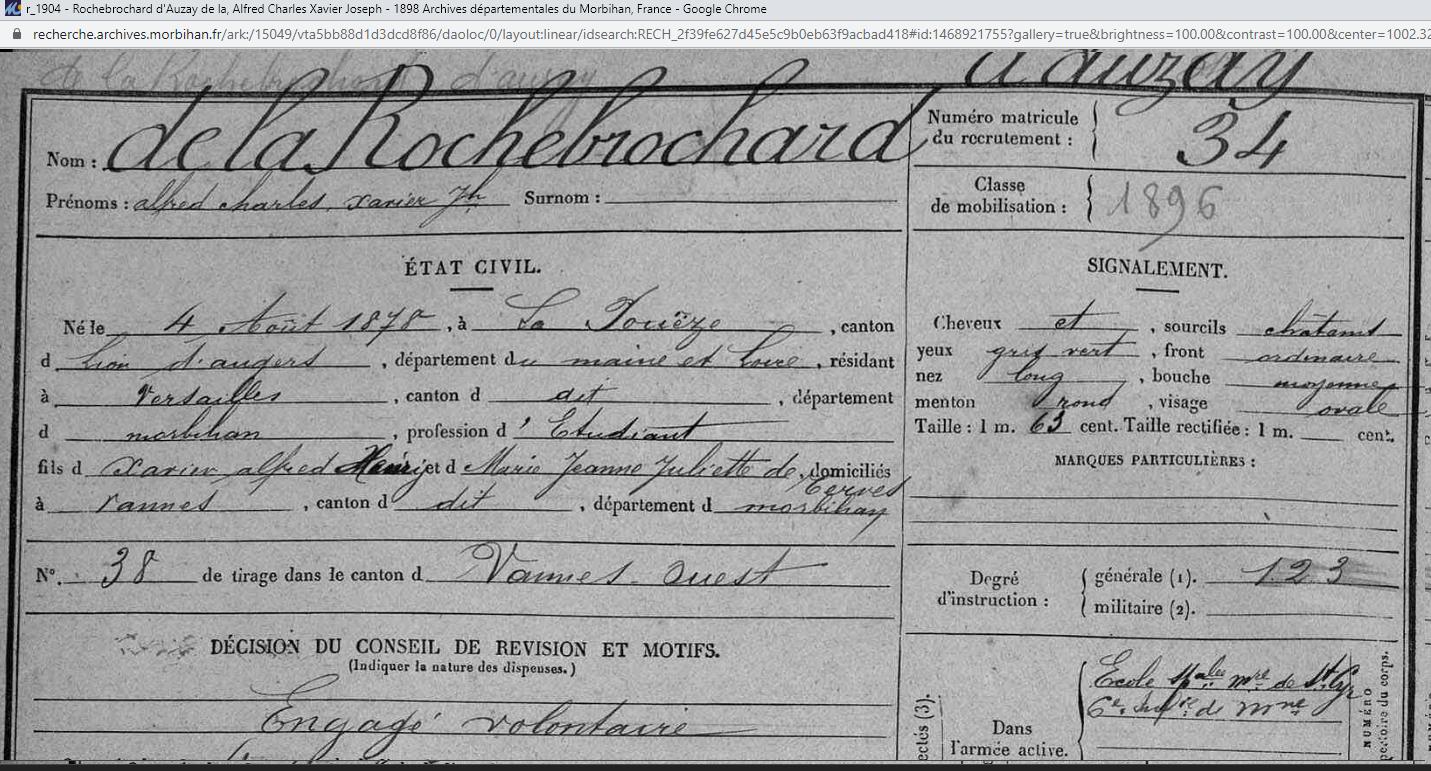 r_1904 - Rochebrochard d'Auzay de la, Alfred Charles Xavier Joseph - 1898 Archives départementales du Morbihan, France - Google Chrome
recherche.archives.morbihan.fr/ark:/15049/vta5bb88d1d3dcd8f86/daoloc/0/layout:linear/idsearch:RECH_2f39fe627d45e5c9b0eb63f9acbad418#id:1468921755?gallery=true&brightness=100.00&contrast=100.00&center=1002.32
de la Rochebrochard d'auzay
d'auzay
Nom : de la Rochebrochard
Numéro matricule du recrutement : 34
Prénoms : alfred charles, xavier Jh Surnom :
Classe de mobilisation : 1896
ÉTAT CIVIL.
Né le 4 Août 1878, à La Pouëze, canton
d Lion d'angers, département du maine et Loire, résidant
à Versailles, canton d dit, département
d morbihan, profession d'Etudiant
fils d Xavier alfred Henri et d Marie Jeanne Juliette de Terves, domiciliés
à Vannes, canton d dit, département d morbihan
SIGNALEMENT.
Cheveux et, sourcils châtains
yeux gris vert, front ordinaire
nez long, bouche moyenne
menton rond, visage ovale
Taille : 1 m. 63 cent. Taille rectifiée : 1 m. cent.
MARQUES PARTICULIÈRES :
No. 38 de tirage dans le canton d Vannes-Ouest
Degré d'instruction :
générale (1). 1 2 3
militaire (2).
DÉCISION DU CONSEIL DE REVISION ET MOTIFS.
(Indiquer la nature des dispenses.)
Engagé volontaire
Dans l'armée active.
Ecole Spales mre de St Cyr
de mne
NUMÉRO